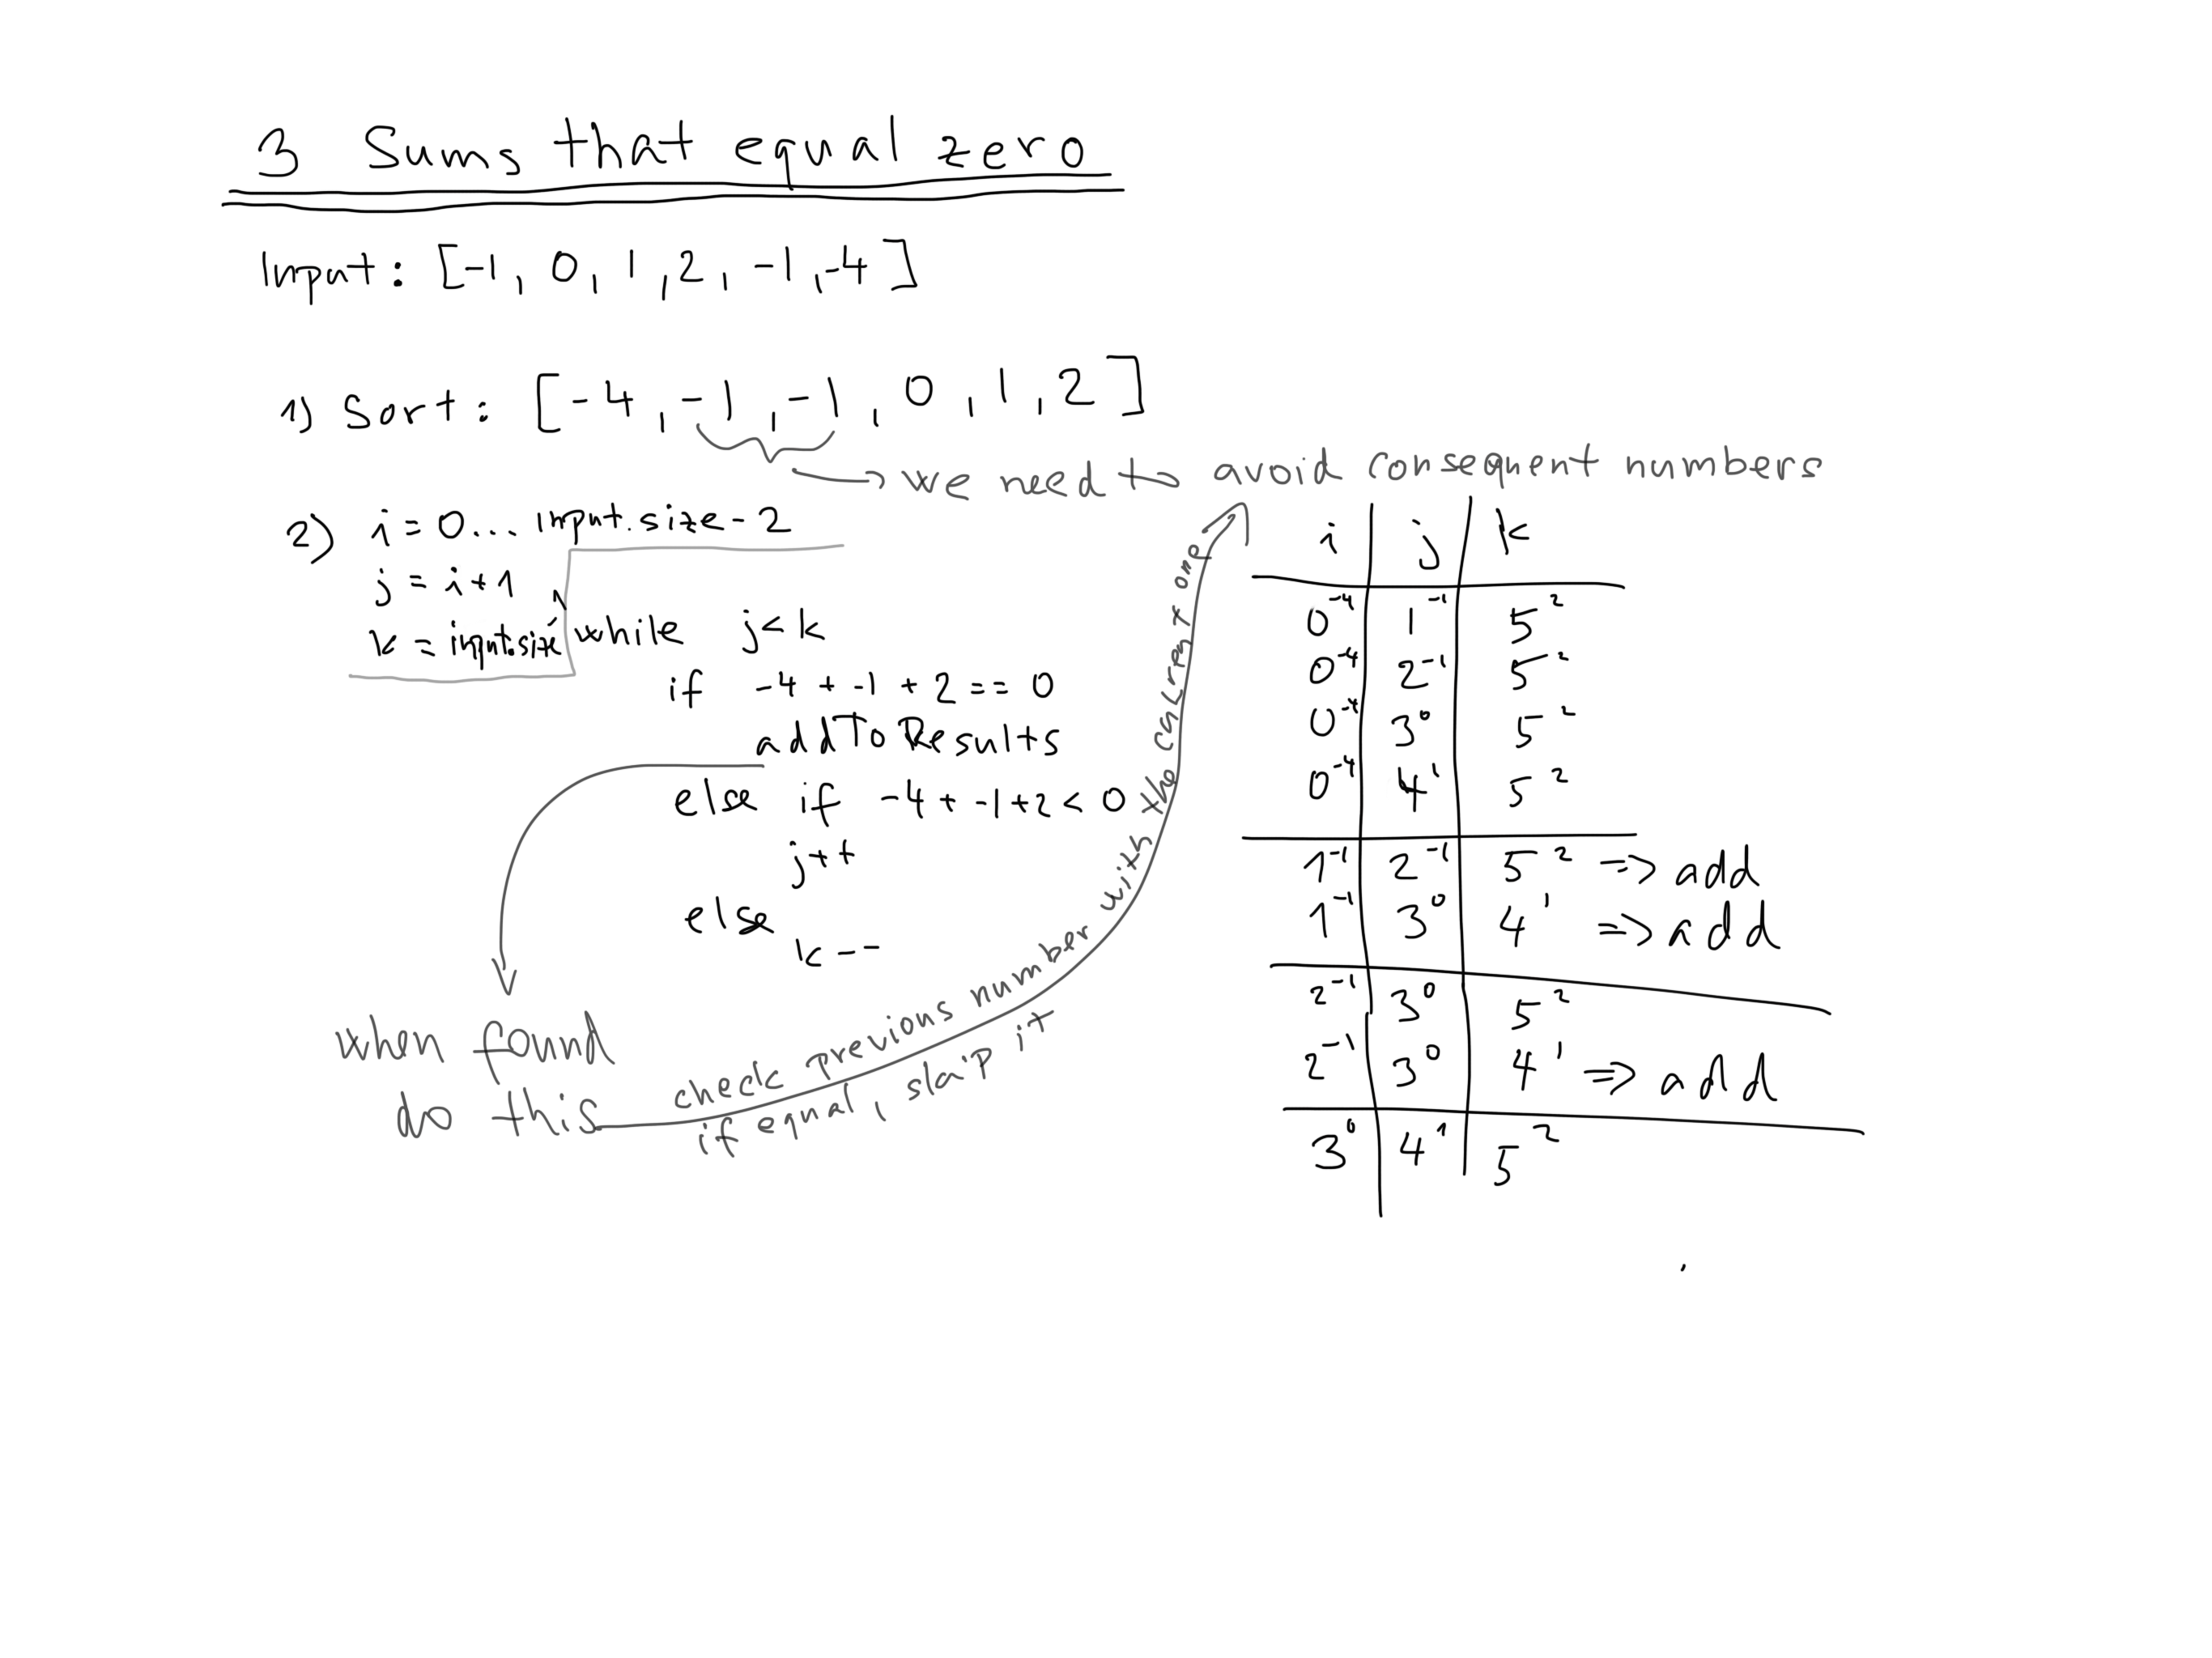 3 Sums that equal zero
Input: [-1, 0, 1, 2, -1, -4]
1) Sort: [-4, -1, -1, 0, 1, 2]
we need to avoid consequent numbers
2) i = 0... input.size - 2
j = i + 1
k = input.size - 1
while j < k
if -4 + -1 + 2 == 0
addToResults
else if -4 + -1 + 2 < 0
j++
else
k--
when found
do this
check previous number with the current one.
if equal, skip it
i j k
0⁻⁴ 1⁻¹ 5²
0⁻⁴ 2⁻¹ 5²
0⁻⁴ 3⁰ 5²
0⁻⁴ 4¹ 5²
1⁻¹ 2⁻¹ 5² => add
1⁻¹ 3⁰ 4¹ => add
2⁻¹ 3⁰ 5²
2⁻¹ 3⁰ 4¹ => add
3⁰ 4¹ 5²